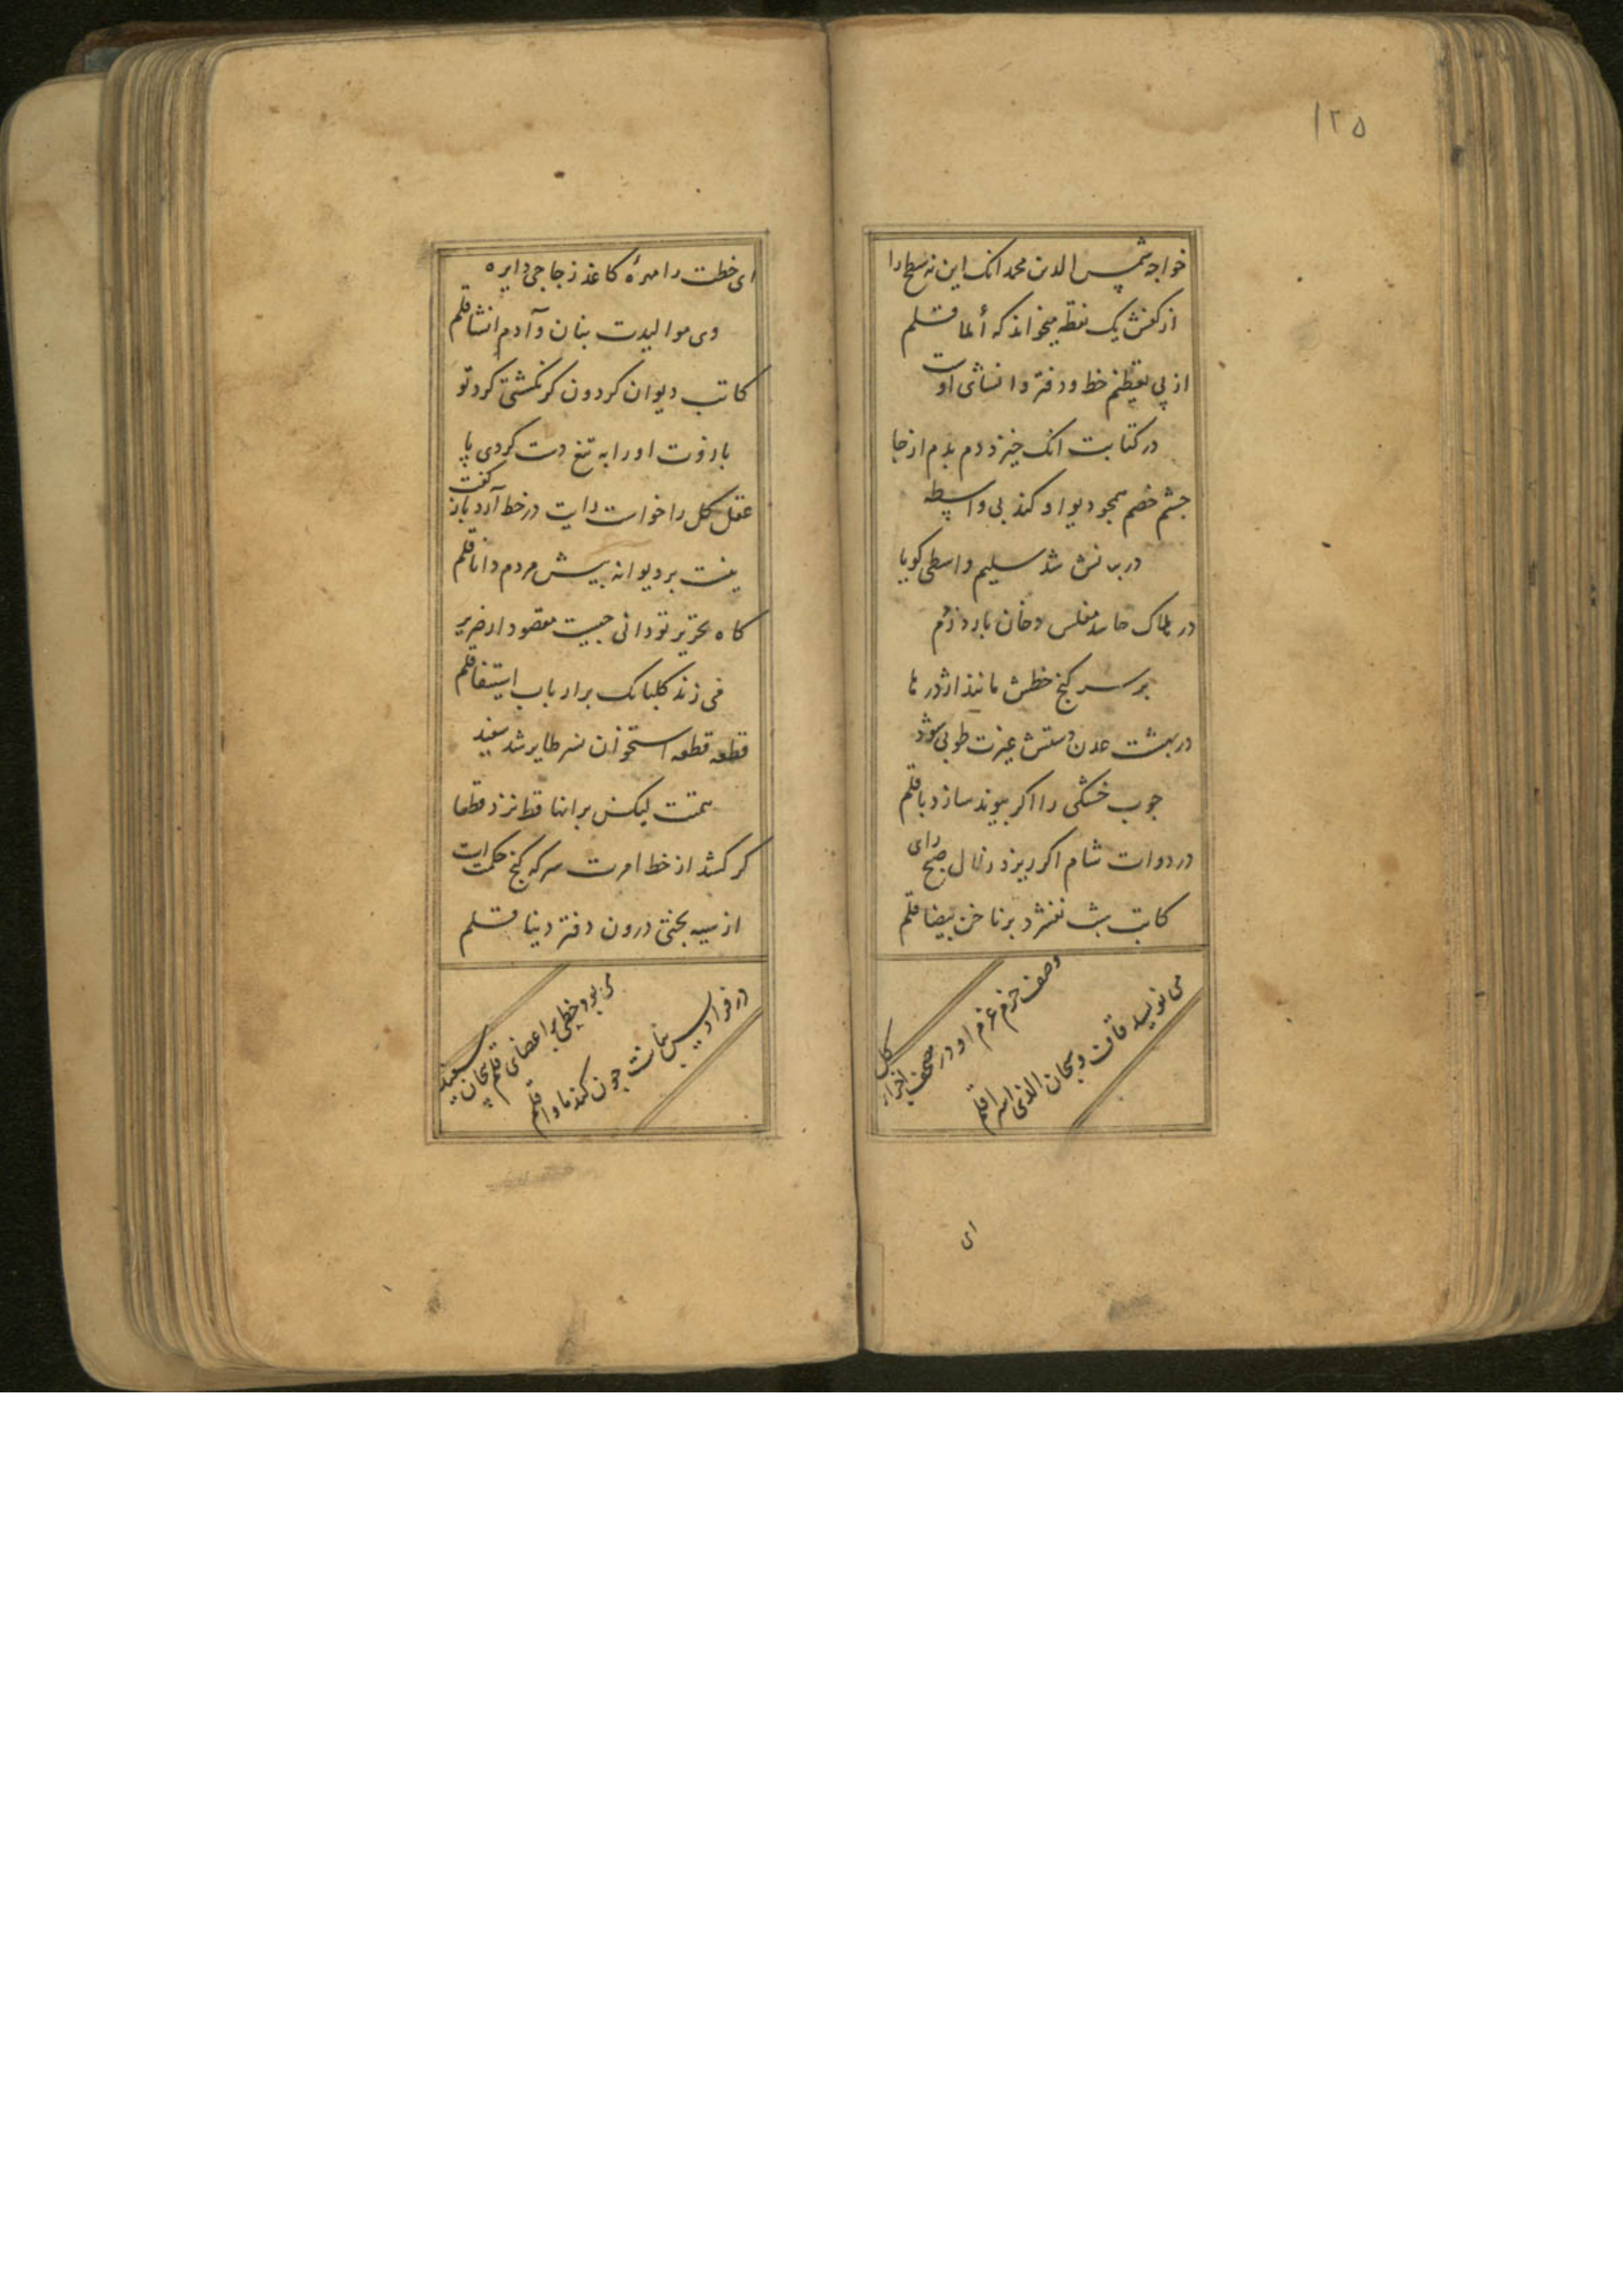 ۱۲۵
خواجه شمس الدین محمد انک این نه سطح را
از کفش یک نقطه میخواند که أملا قلم
از پی تعظیم خط و دفتر و انشای اوست
در کتابت انک خیزد دم بدم از جا
چشم خصم همچو دیو او کند بی واسطه
در بنانش شد سلیم واسطی کویا
در هلاک حاسد مفلس دخان بارد ز فم
بر سر کنج خطش مانند اژدرها
در بهشت عدن دستش غیرت طوبی شود
جوب خشکی را اکر پیوند سازد با قلم
در دوات شام اکر ریزد زلال صبح رای
کاتب شب نفشرد بر ناخن بیضا قلم
وصف حزم عزم او در مصحف اخرای کل
می نویسد قاف و سبحان الذی اسرا قلم
ای
ای خطت را مهرهٔ کاغذ زجاجی دایره
وی موالیدت بنان و آدم انشا قلم
کاتب دیوان کردون کر نکشتی کرد تو
بارزوت او را به تیغ دست کردی پا
عقل کل را خواست رایت در خط آرد باز گفت
نیست بر دیوانه بیش مردم دانا قلم
کاه تحریر تو دانی جیست مقصود از ضریر
می زند کلبانک بر ارباب استیفا قلم
قطعه قطعه استخوان نسر طایر شد سفید
همتت لیکن بر انها قط نزد قطعا
کر کشد از خط امرت سر که کنج حکمت است
از سیه بختی درون دفتر دینا قلم
می بود خطی بر اعضای قلم پیجان سفید
در فرادیس بنانت جون کند ماوا قلم